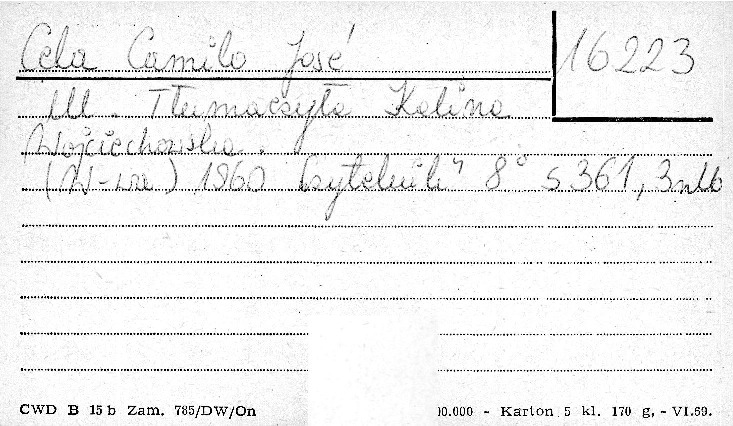 Cela Camilo José
16223
Ul. Tłumaczyła Kalina
Wojciechowska.
(W-wa) 1960 Czytelnik" 8° s 361, 3nlb
CWD B 15 b Zam. 785/DW/On
00.000 - Karton 5 kl. 170 g, - VI.69.